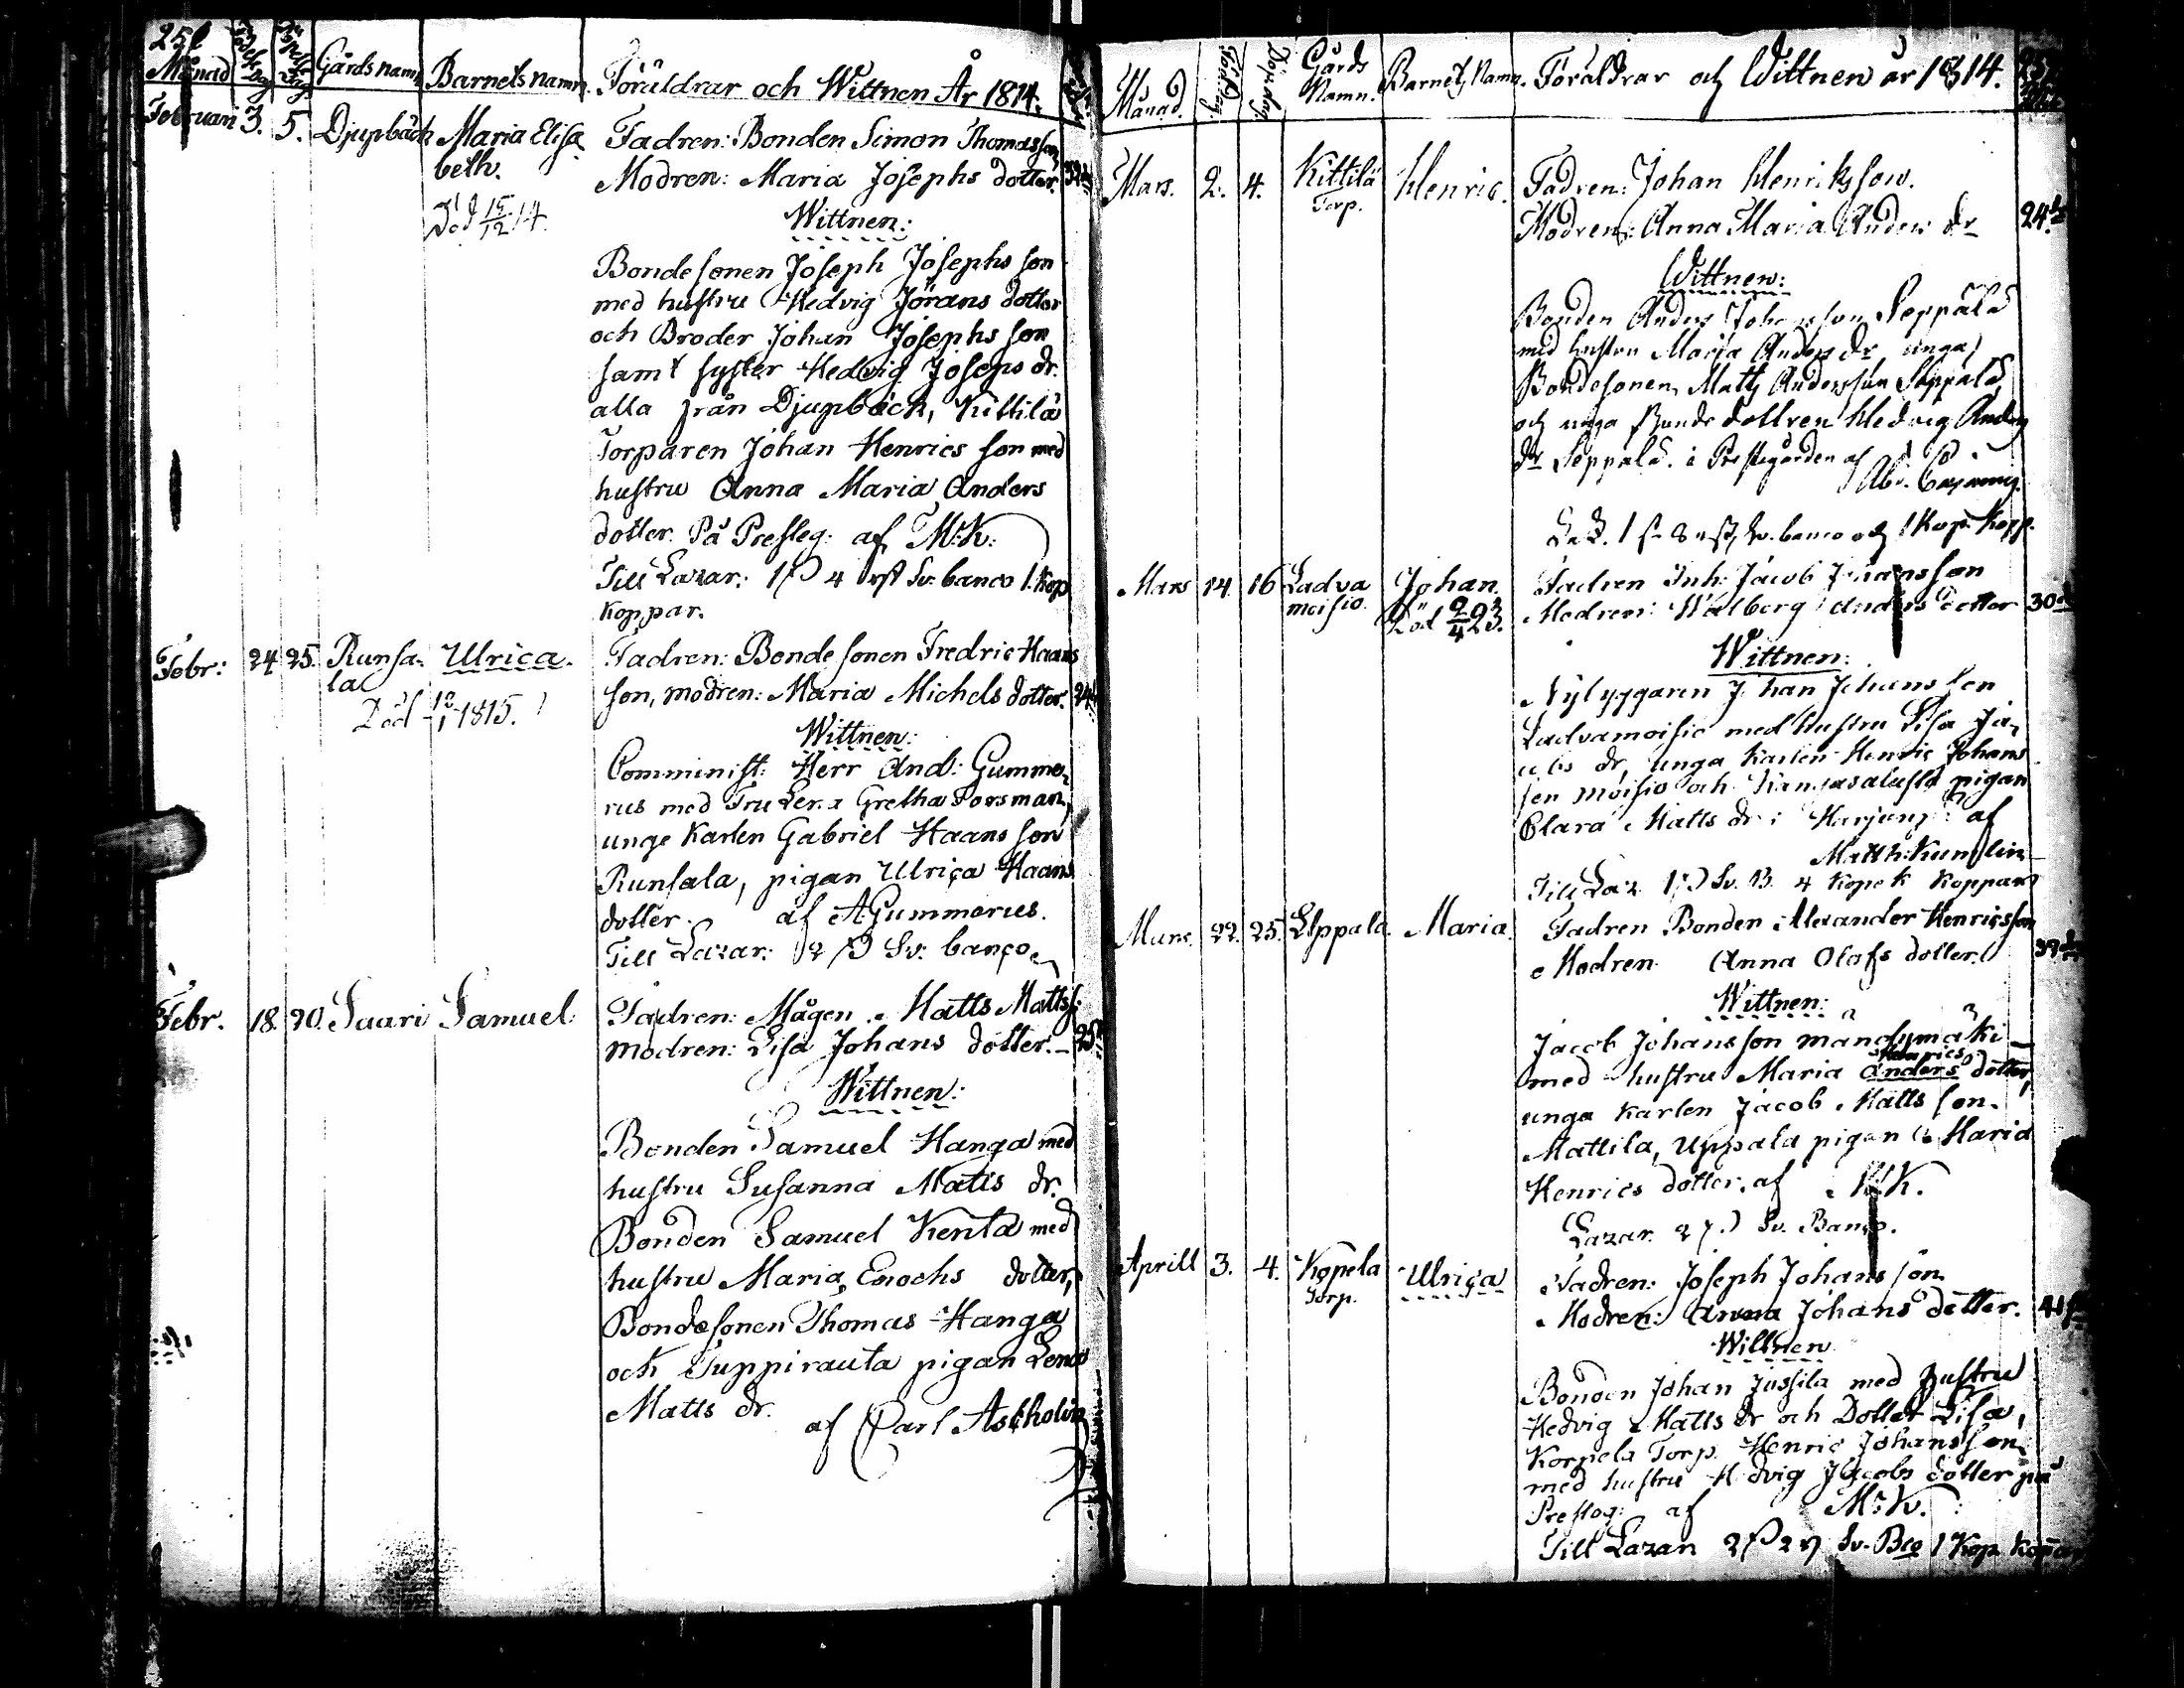 Månad Födelse dag Döpelse dag Gårds namn Barnets namn. Föräldrar och Wittnen År 1814.
Februari 3. 5. Djupbäck Maria Elisa Fadren: Bonden Simon Thomasson
beth. Modren: Maria Josephs dotter. 32
Död 15/12 14. Wittnen:
Bondesonen Joseph Josephs son
med hustru Hedvig Jörans dotter
och Broder Johan Josephs son
samt syster Hedvig Joseps dr.
alla från Djupbäck, Kittilä
Torparen Johan Henrics son med
hustru Anna Maria Anders
dotter. På Presteg: af M:K:
Till Lazar: 4 Sv: banco 1. Kop
Koppar.
Febr: 24 25. Runsa- Ulrica. Fadren: Bonde sonen Fredric Haans
la son, modren: Maria Michels dotter. 24
Död 1815. Wittnen:
Comminist: Herr And: Gumme-
rus med Fru Lena Gretha Forsman,
unge Karlen Gabriel Haans son
Runsala, pigan Ulrica Haans
dotter. af A Gummerus.
Till Lazar: 2 Sv: banco
Febr. 18. 20. Saari Samuel. Fadren: Mågen Matts Matts:
modren: Lisa Johans dotter. 25
Wittnen:
Bonden Samuel Hanga med
hustru Susanna Matts dr.
Bonden Samuel Kenta med
hustru Maria Enochs dotter,
Bondesonen Thomas Hanga
och Tuppirauta pigan Lena
Matts dr. af Carl Astholin
Månad. Döpe dag. Gårds Namn. Barnets Namn. Föräldrar och Wittnen år 1814.
Mars. 2. 4. Kittilä Henric. Fadren: Johan Henriksson.
Torp. Modren: Anna Maria Anders dr 24
Wittnen:
Bonden Anders Johansson Seppälä
med hustru Maria Anders dr, unga
Bondesonen Matts Andersson Seppälä,
och unga Bonde dottren Hedvig Anders
dr Seppälä. i Prestegården af
banco och 1 Kop. Kopp.
Mars 14. 16 Ladva Johan. Fadren Inh: Jacob Johansson
moisio. Död 2/4 23. Modren: Walborg Anders dotter 30
Wittnen:
Nybyggaren Johan Johansson
Ladvamoisio med hustru Lisa Ja-
cobs dr, unga Karlen Henric Johans
son Moisio och Kangasalusta pigan
Clara Matts dr i af
Matth: Kumlin
Till Laz. Sv. B. 4 Kopek Koppar
Mars. 22. 25. Uppala. Maria. Fadren Bonden Alexander Henricsson
Modren Anna Olofs dotter. 37
Wittnen:
Jacob Johansson Mandymäki
Henrics
med hustru Maria Anders dotter,
unga Karlen Jacob Matts son
Mattila, Uppala pigan Maria
Henrics dotter. af M:K.
Lazar. 2 Sv. Banco.
Aprill 3. 4. Kopela Ulrica Fadren: Joseph Johansson
Torp. Modren: Anna Johans dotter. 41
Wittnen
Bonden Johan Jussila med Hustru
Hedvig Matts dr och Dotter Lisa,
Korpela Torp. Henric Johansson
med hustru Hedvig Jacobs dotter på
Presteg: af M:K.
Till Lazar. 2 Sv. Bco 1 Kop Koppar